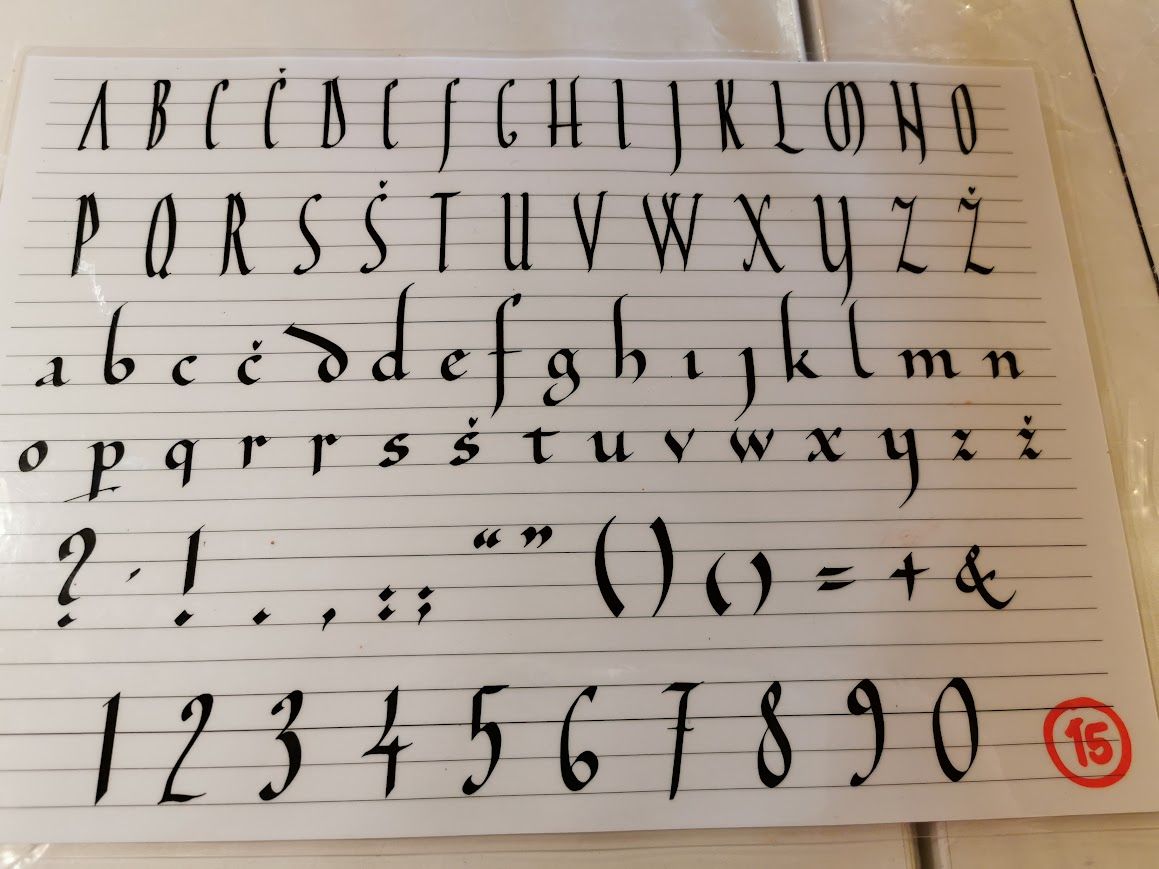 A B C Č D E F G H I J K L M N O
P Q R S Š T U V W X Y Z Ž
a b c č d d e f g h ı ȷ k l m n
o p q r r s š t u v w x y z ž
? ' ! . , : ; “ ” ( ) ( ) = + &
1 2 3 4 5 6 7 8 9 0
15